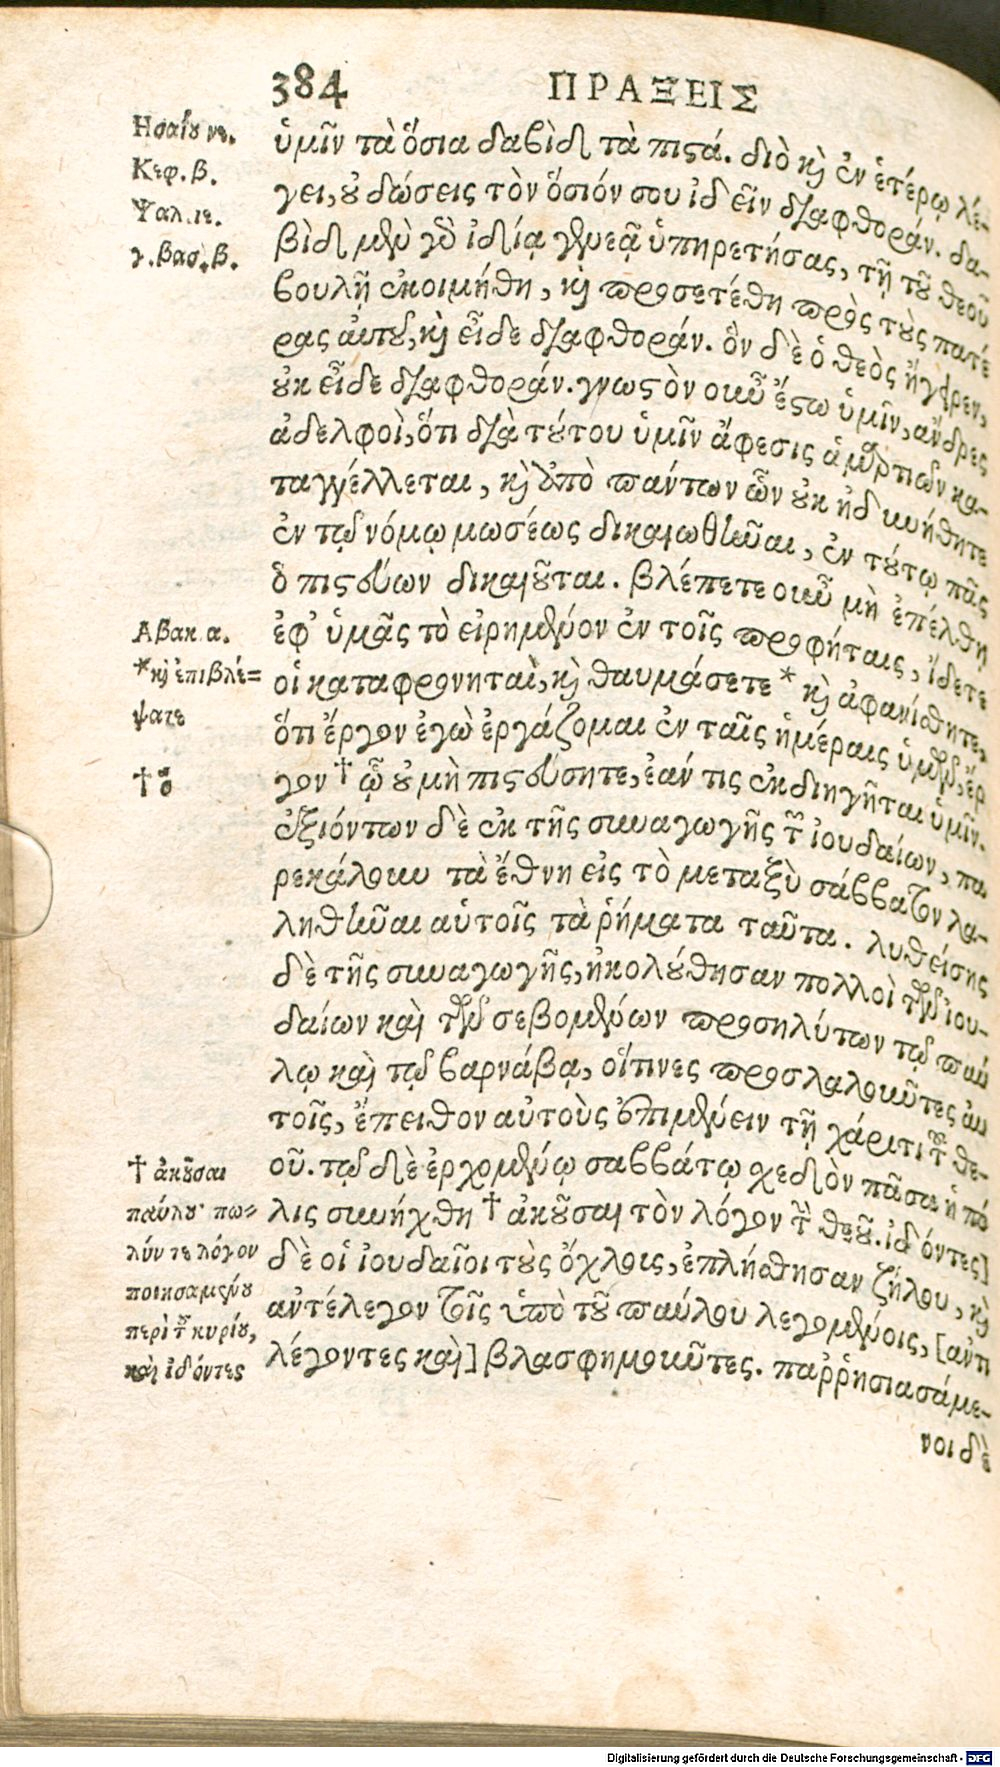 384 ΠΡΑΞΕΙΣ
Ησαΐου νε.
Κεφ. β.
Ψαλ. ιε.
γ. βασ. β.
ὑμῖν τὰ ὅσια δαβὶδ τὰ πιστά. διὸ καὶ ἐν ἑτέρῳ λέ-
γει, οὐ δώσεις τὸν ὅσιόν σου ἰδεῖν διαφθοράν. δα-
βὶδ μὲν γὸ ἰδίᾳ γενεᾷ ὑπηρετήσας, τῇ τοῦ θεοῦ
βουλῇ ἐκοιμήθη, καὶ προσετέθη πρὸς τοὺς πατέ
ρας αὐτοῦ, καὶ εἶδε διαφθοράν. ὃν δὲ ὁ θεὸς ἤγειρεν,
οὐκ εἶδε διαφθοράν. γνωστὸν οὖν ἔστω ὑμῖν, ἄνδρες
ἀδελφοὶ, ὅτι διὰ τούτου ὑμῖν ἄφεσις ἁμαρτιῶν κα-
ταγγέλλεται, καὶ ἀπὸ πάντων ὧν οὐκ ἠδυνήθητε
ἐν τῷ νόμῳ μωσέως δικαιωθῆναι, ἐν τούτῳ πᾶς
ὁ πιστεύων δικαιοῦται. βλέπετε οὖν μὴ ἐπέλθῃ
ἐφ᾽ ὑμᾶς τὸ εἰρημένον ἐν τοῖς προφήταις, ἴδετε
οἱ καταφρονηταὶ, καὶ θαυμάσετε * καὶ ἀφανίσθητε,
ὅτι ἔργον ἐγὼ ἐργάζομαι ἐν ταῖς ἡμέραις ὑμῶν, ἔρ
γον † ᾧ οὐ μὴ πιστεύσητε, ἐάν τις ἐκδιηγῆται ὑμῖν.
ἐξιόντων δὲ ἐκ τῆς συναγωγῆς τῶν ἰουδαίων, πα
ρεκάλουν τὰ ἔθνη εἰς τὸ μεταξὺ σάββατον λα-
ληθῆναι αὐτοῖς τὰ ῥήματα ταῦτα. λυθείσης
δὲ τῆς συναγωγῆς, ἠκολούθησαν πολλοὶ τῶν ἰου-
δαίων καὶ τῶν σεβομένων προσηλύτων τῷ παύ
λῳ καὶ τῷ βαρνάβᾳ, οἵτινες προσλαλοῦντες αὐ
τοῖς, ἔπειθον αὐτοὺς ἐπιμένειν τῇ χάριτι τοῦ θε-
οῦ. τῷ δὲ ἐρχομένῳ σαββάτῳ σχεδὸν πᾶσα ἡ πό
λις συνήχθη † ἀκοῦσαι τὸν λόγον τοῦ θεοῦ. ἰδόντες]
δὲ οἱ ἰουδαῖοι τοὺς ὄχλους, ἐπλήσθησαν ζήλου, καὶ
ἀντέλεγον τοῖς ὑπὸ τοῦ παύλου λεγομένοις, [ἀντι
λέγοντες καὶ] βλασφημοῦντες. παῤῥησιασάμε-
νοι δὲ
Αβακ. α.
*καὶ ἐπιβλέ=
ψατε
† ὃ
† ἀκοῦσαι
παύλου· πο=
λύν τε λόγον
ποιησαμένου
περὶ τοῦ κυρίου,
καὶ ἰδόντες
Digitalisierung gefördert durch die Deutsche Forschungsgemeinschaft - DFG